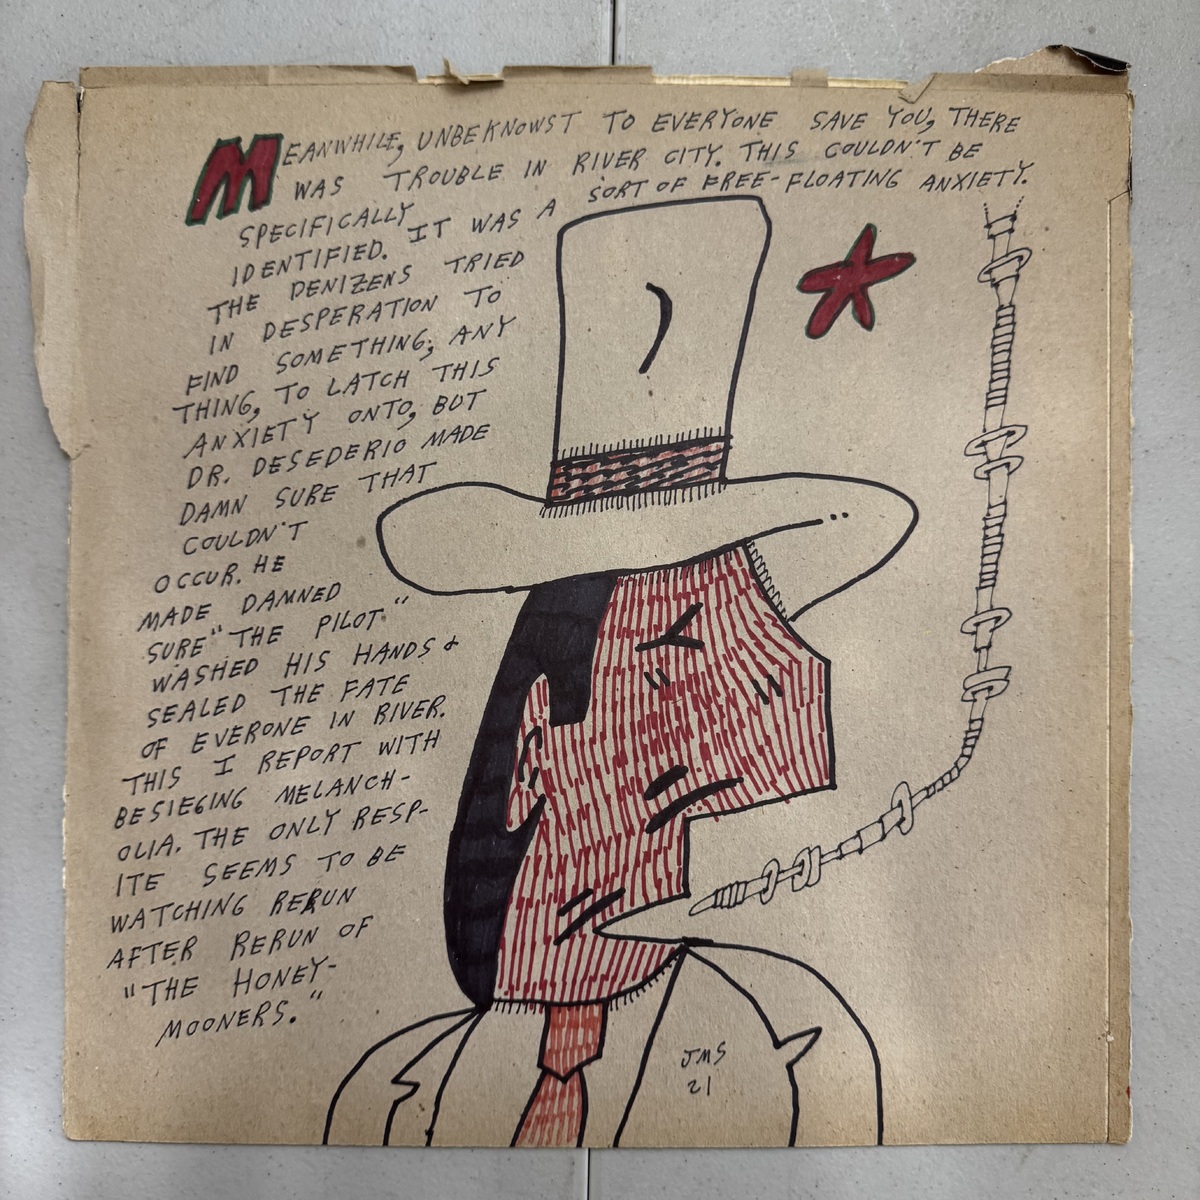 MEANWHILE, UNBEKNOWST TO EVERYONE SAVE YOU, THERE
WAS TROUBLE IN RIVER CITY. THIS COULDN'T BE
SPECIFICALLY
IDENTIFIED. IT WAS A SORT OF FREE-FLOATING ANXIETY.
THE DENIZENS TRIED
IN DESPERATION TO
FIND SOMETHING, ANY
THING, TO LATCH THIS
ANXIETY ONTO, BUT
DR. DESEDERIO MADE
DAMN SURE THAT
COULDN'T
OCCUR. HE
MADE DAMNED
SURE "THE PILOT"
WASHED HIS HANDS &
SEALED THE FATE
OF EVERONE IN RIVER.
THIS I REPORT WITH
BESIEGING MELANCH-
OLIA. THE ONLY RESP-
ITE SEEMS TO BE
WATCHING RERUN
AFTER RERUN OF
"THE HONEY-
MOONERS."
JMS
21